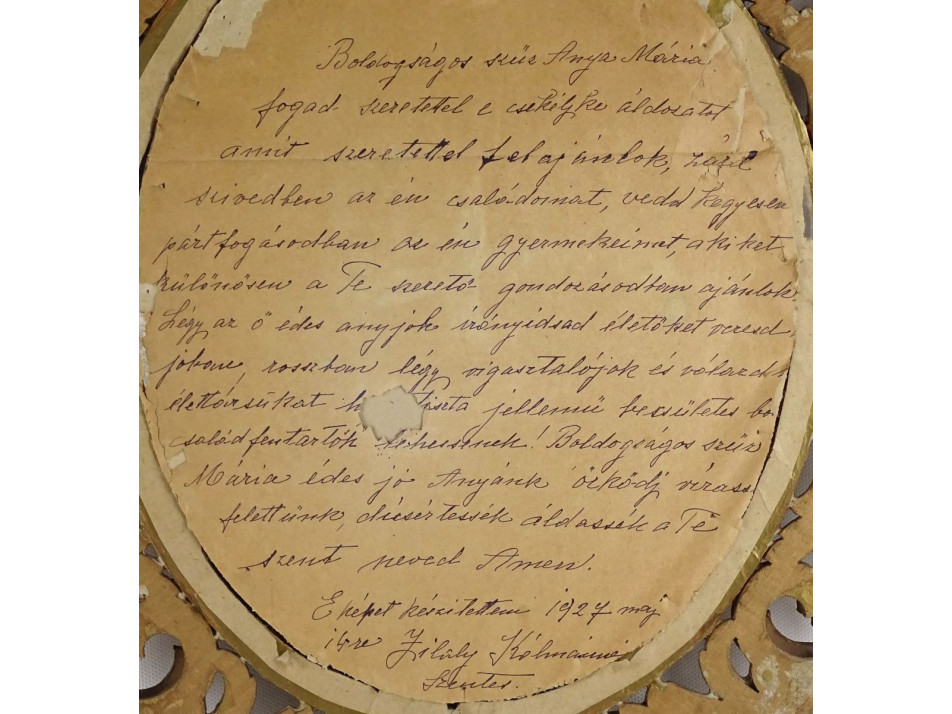 Boldogságos szűz Anya Mária
fogad szeretettel e csekélyke áldozatot
amit szeretettel felajánlok, zárd
szivedben az én családomat, vedd kegyesen
pártfogásodban az én gyermekeimet, akiket
különösen a Te szerető gondozásodban ajánlok.
Légy az ő édes anyjok irányidsad életöket
joban, rosszban légy vigasztalójok és
élettársúkat tiszta jellemü becsületes
család fentartók lehessenek! Boldogságos szűz
Mária édes jó Anyánk őrködj
felettünk, dicsértessék áldassék a Te
szent neved Amen.
E képet készitettem 1927 maj
Zilaly Kálmánné
Szentes.